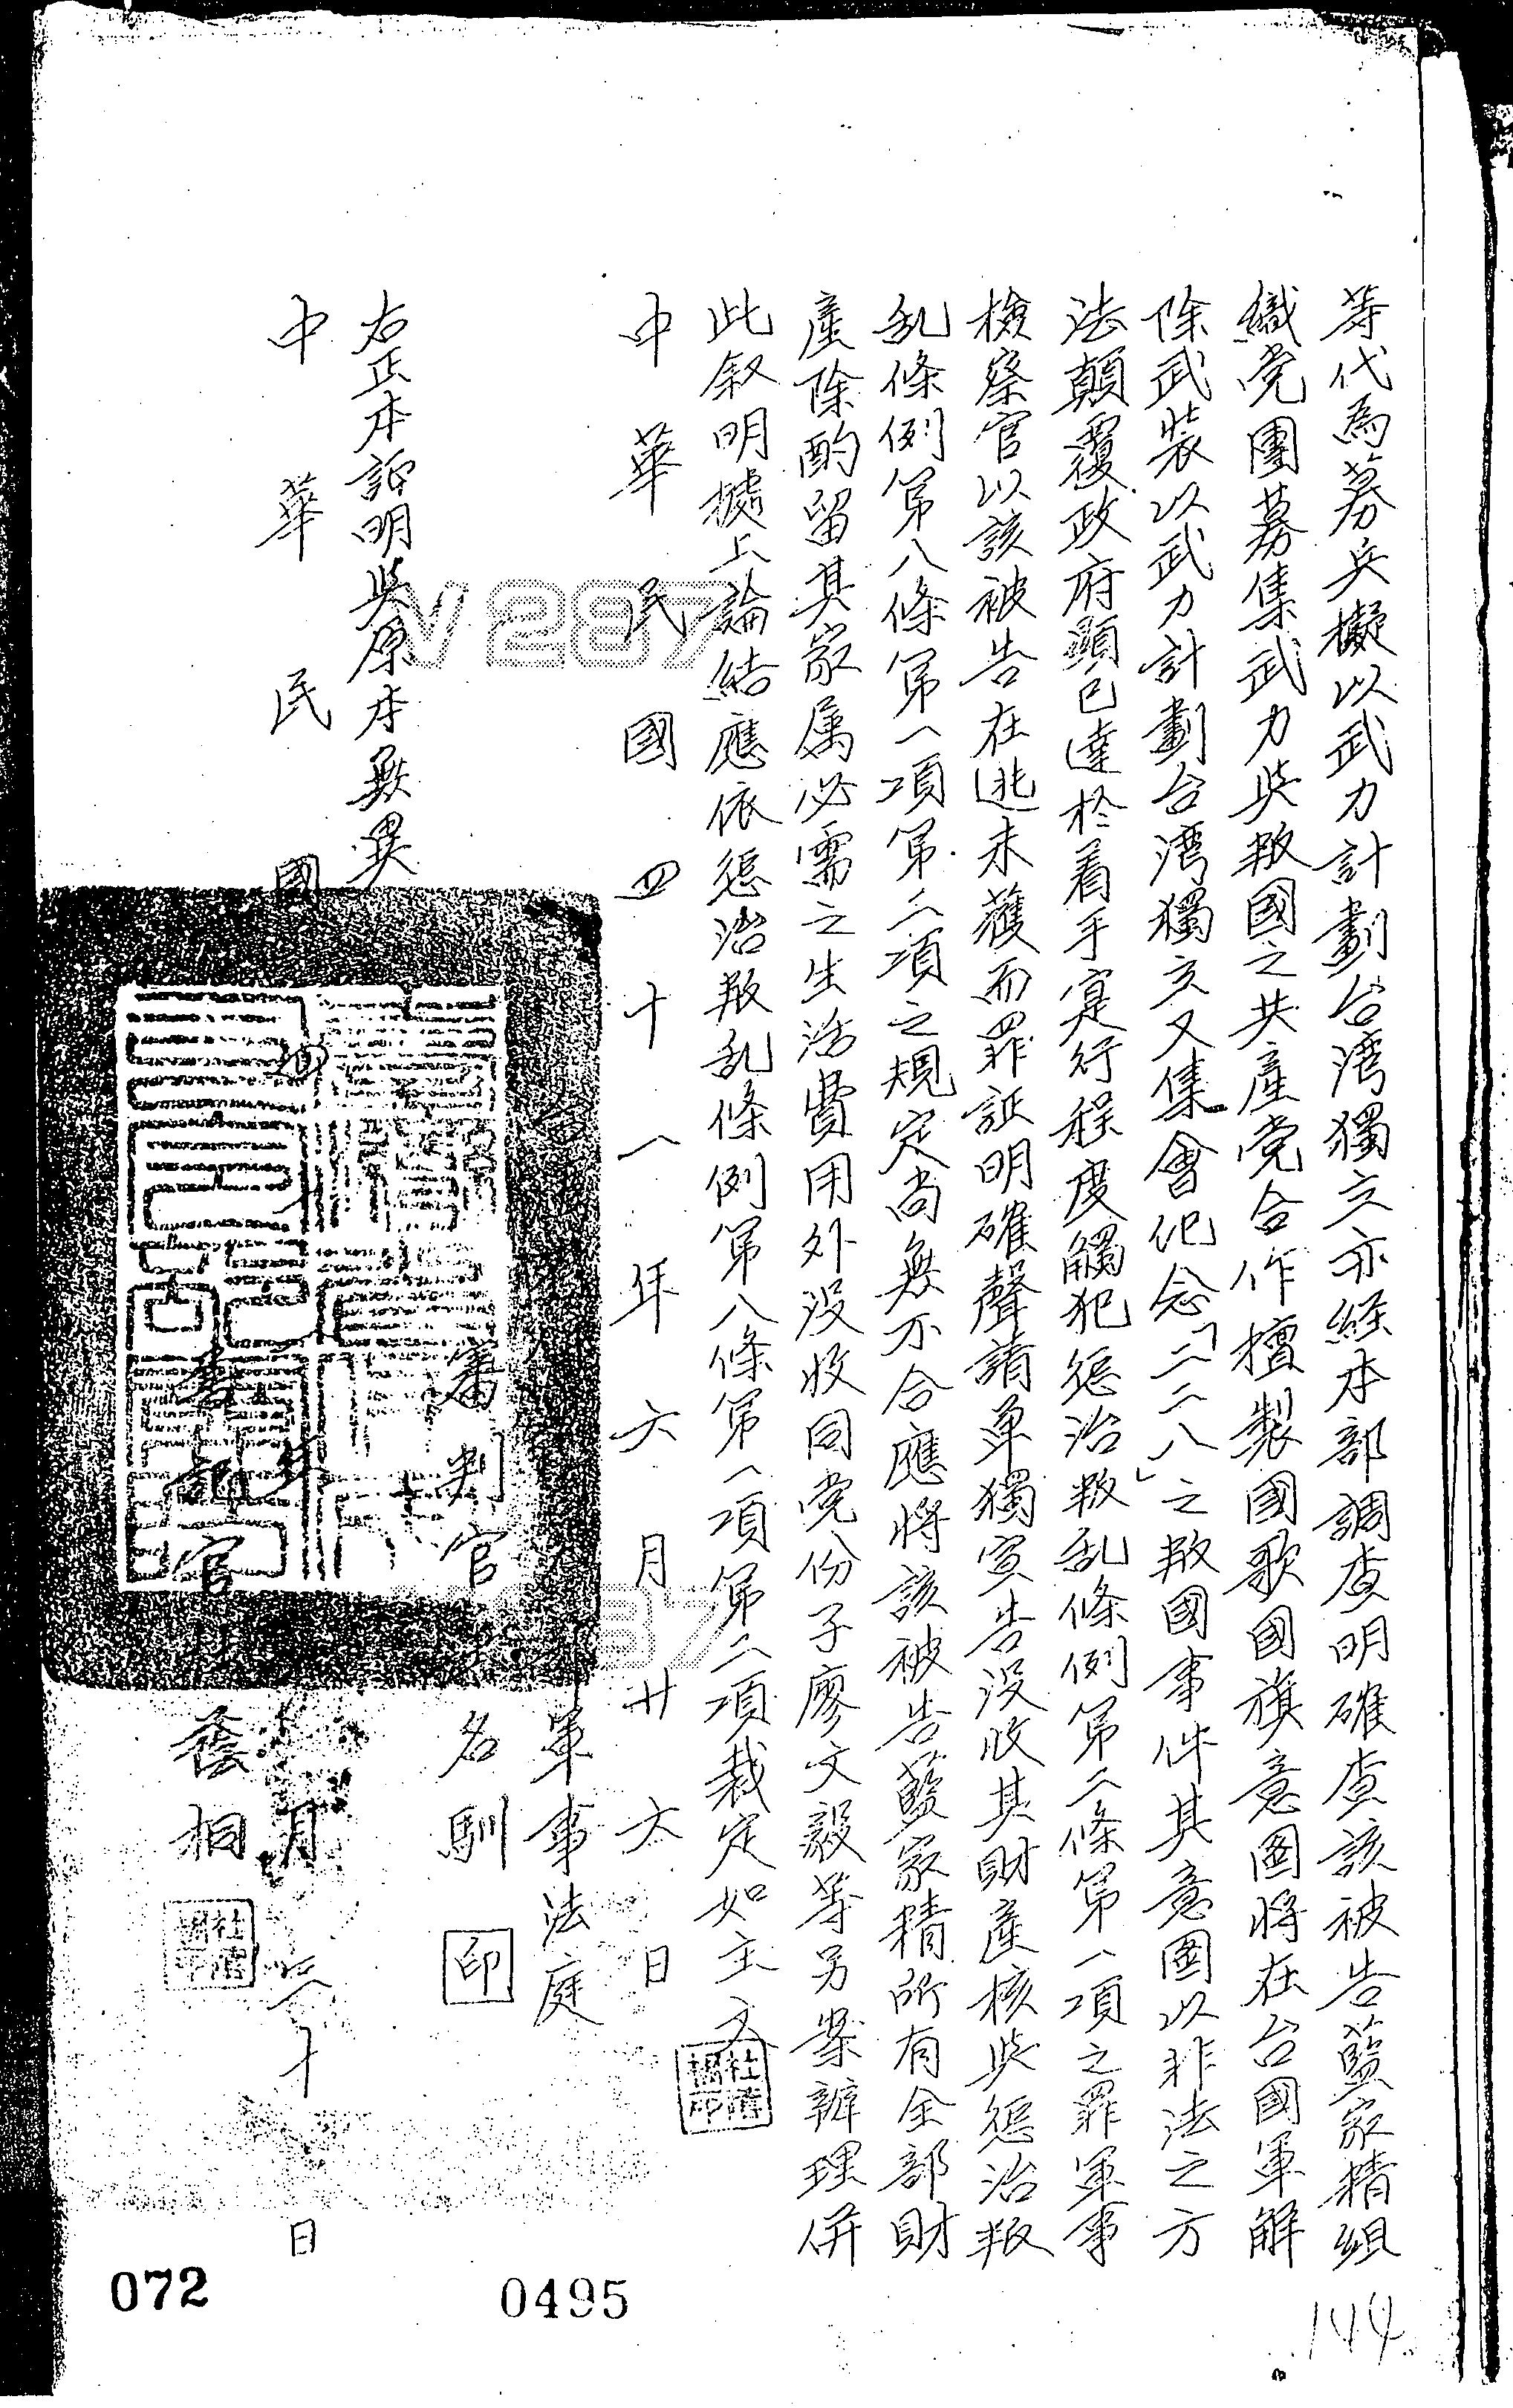 等代為募兵擬以武力計劃台湾獨立亦経本部調查明確查該被告藍家精組
織党團募集武力與叛國之共產党合作擅製國歌國旗意圖將在台國軍解
除武装以武力計劃台湾獨立又集會紀念「二二八」之叛國事件其意圖以非法之方
法顛覆政府顕已達於着手寔行程度觸犯惩治叛乱條例第二條第一項之罪軍事
檢察官以該被告在逃未獲而罪証明確聲請单獨宣告没收其財產核與惩治叛
乱條例第八條第一項第二項之規定尚無不合應將該被告藍家精所有全部財
產除酌留其家属必需之生活費用外没收同党份子廖文毅等另案辦理併
此叙明據上論結應依惩治叛乱條例第八條第一項第二項裁定如主文
中華民國四十一年六月廿六日
軍事法庭
審判官 名馴 印
右正本証明與原本無異
中華民國 年 月 三十 日
書記官
072
0495
144